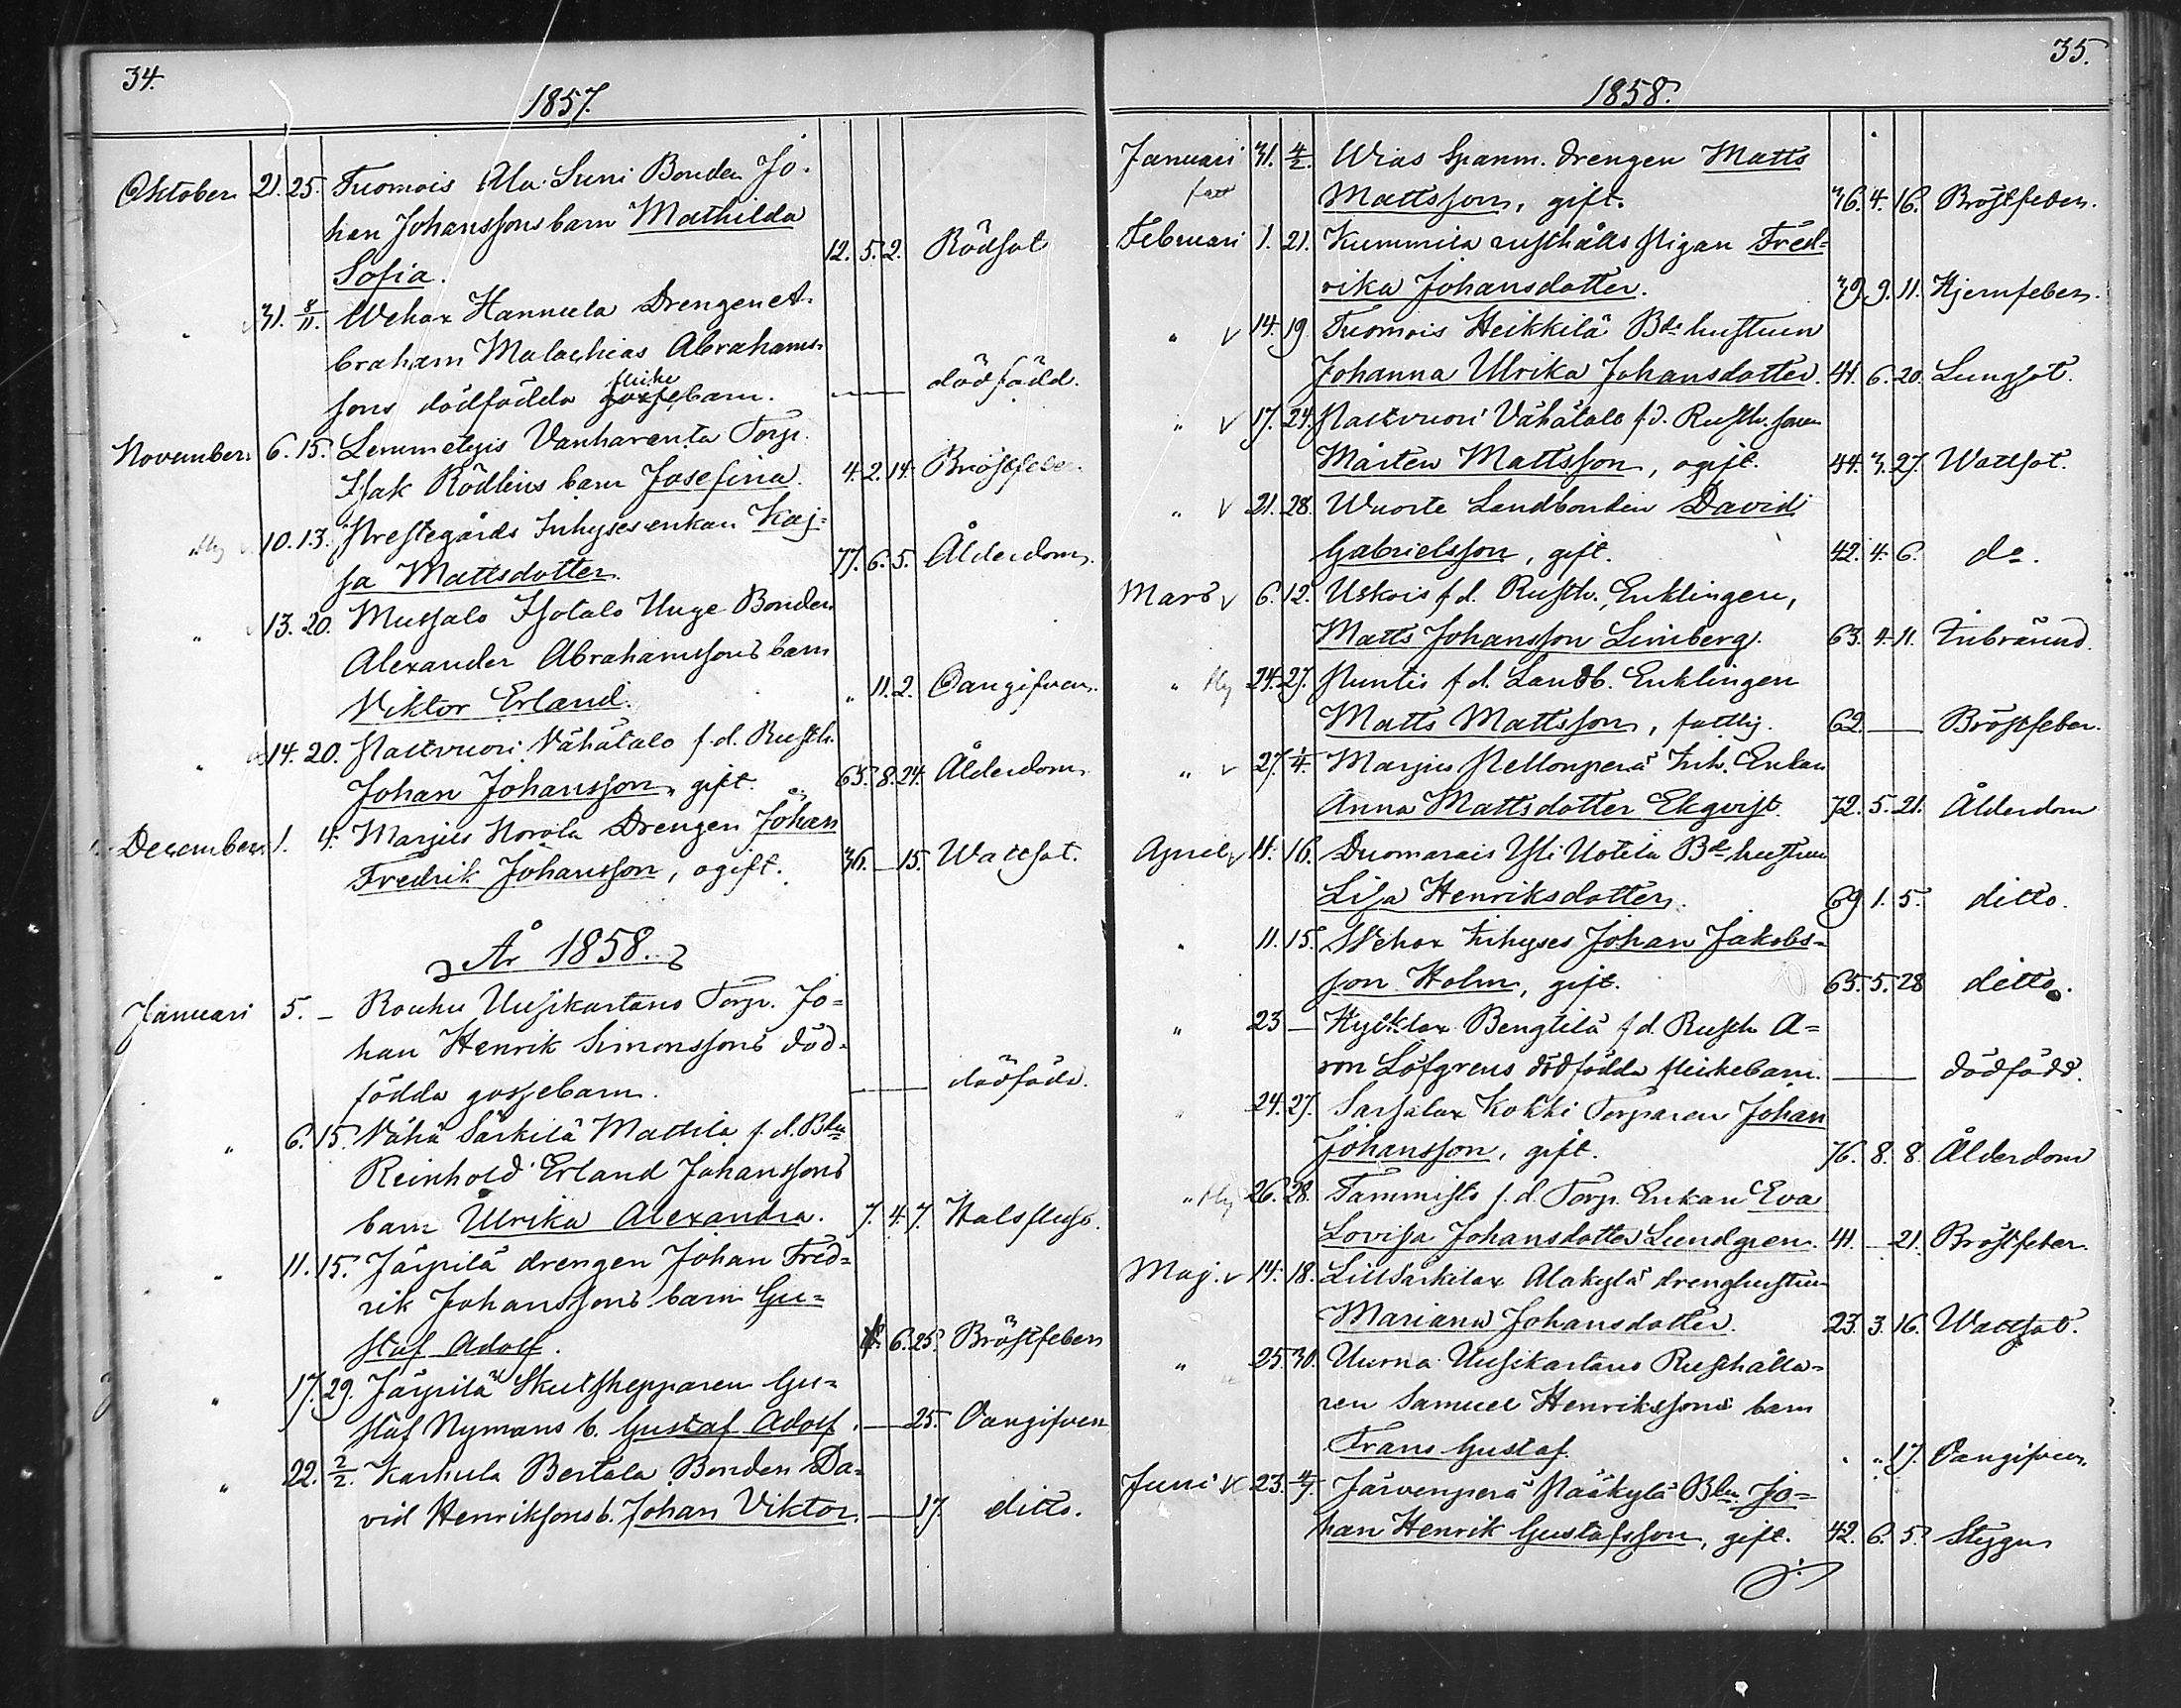 34.
1857.
Oktober 21. 25. Tuomois Ala Suni Bonden Jo-
han Johanssons barn Mathilda
Sofia. 12. 5. 2. Rödsot
" 31. 8/11. Wehax Hannula Drengen A-
braham Malachias Abrahams-
flicke
sons dödfödda gossebarn. — dödfödd.
November 6. 15. Lemmetyis Vanharanta Torp.
Isak Rödlins barn Josefina. 4. 2. 14. Bröstfeber.
" 10. 13. Prestegårds Inhyses enkan Kaj-
sa Mattsdotter. 77. 6. 5. Ålderdom.
" 13. 20. Mussalo Isotalo Unge Bonden
Alexander Abrahamssons barn
Viktor Erland. " 11. 2. Oangifven.
" 14. 20. Nastvuori Vähätalo f.d. Rusth.
Johan Johansson, gift. 65. 8. 24. Ålderdom
December 1. 4. Marjus Norola Drengen Johan
Fredrik Johansson, ogift. 36. — 15. Wattsot.
År 1858.
Januari 5. — Rouhu Uusikartano Torp. Jo-
han Henrik Simonssons död-
födda gossebarn. — dödfödd.
" 6. 15. Vähä Särkilä Mattila f.d. Bden
Reinhold Erland Johanssons
barn Ulrika Alexandra. 7. 4. 7. Halsfluss.
" 11. 15. Järpilä drengen Johan Fred-
rik Johanssons barn Gu-
staf Adolf. 6. 25. Bröstfeber
" 17. 29. Järpilä Skutskepparen Gu-
staf Nymans b. Gustaf Adolf. — 25. Oangifven
" 22. 2/2. Karhula Bertala Bonden Da-
vid Henrikssons b. Johan Viktor. — 17. ditto.
35.
1858.
Januari 31. 4/2. Wias Spanm. drengen Matts
Mattsson, gift. 36. 4. 16. Bröstfeber.
Februari 1. 21. Kummila rusthålls pigan Fred-
rika Johansdotter. 39. 9. 11. Hjernfeber.
" v 14. 19. Tuomois Heikkilä Bde hustrun
Johanna Ulrika Johansdotter. 41. 6. 20. Lungsot.
" v 17. 24. Nastvuori Vähätalo f.d. Rusth. sonen
Mårten Mattsson, ogift. 44. 3. 27. Wattsot.
" v 21. 28. Wuorte Landbonden David
Gabrielsson, gift. 42. 4. 6. do.
Mars v 6. 12. Uskois f.d. Rusth. Enklingen,
Matts Johansson Limberg. 63. 4. 11. Inbränd.
" 24. 27. Puntis f.d. Landb. Enklingen
Matts Mattsson, fattig. 62. — Bröstfeber.
" v 27. 4. Marjus Pellonperä Inh. Enkan
Anna Mattsdotter Ekqvist. 72. 5. 21. Ålderdom
April v 11. 16. Duomarais Yli Uotila Bde hustrun
Lisa Henriksdotter. 69. 1. 5. ditto.
" 11. 15. Wehax Inhyses Johan Jakobs-
son Holm, gift. 65. 5. 28 ditto.
" 23 — Hylklax Bengtilä f.d. Rusth A-
ron Löfgrens dödfödda flickebarn. — dödfödd.
" 24. 27. Sarsalax Kokki Torparen Johan
Johansson, gift. 76. 8. 8. Ålderdom
" 26. 28. Tammisto f.d. Torp. Enkan Eva
Lovisa Johansdotter Lundgren. 41. — 21. Bröstfeber.
Maj. v 14. 18. Lillsärkilax Alakylä drenghustrun
Mariana Johansdotter. 23. 3. 16. Wattsot.
" 25. 30. Uurna Uusikartano Rusthålla-
ren Samuel Henrikssons barn
Frans Gustaf. " " 17. Oangifven.
Juni 23. 4/7. Järvenperä Pääkylä Bden Jo-
han Henrik Gustafsson, gift. 42. 6. 5. Stygn